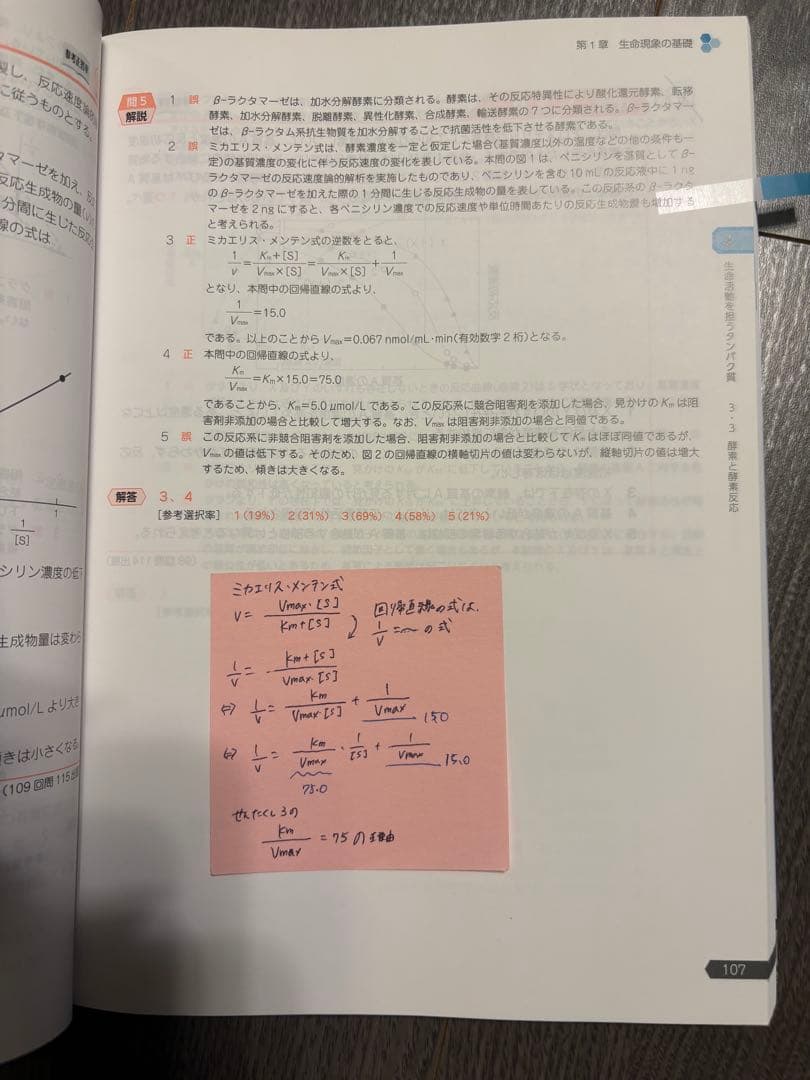 第1章 生命現象の基礎
問5
解説
1 誤 β-ラクタマーゼは、加水分解酵素に分類される。酵素は、その反応特異性により酸化還元酵素、転移
酵素、加水分解酵素、脱離酵素、異性化酵素、合成酵素、輸送酵素の7つに分類される。β-ラクタマー
ゼは、β-ラクタム系抗生物質を加水分解することで抗菌活性を低下させる酵素である。
2 誤 ミカエリス・メンテン式は、酵素濃度を一定と仮定した場合(基質濃度以外の温度などの他の条件も一
定)の基質濃度の変化に伴う反応速度の変化を表している。本問の図1は、ペニシリンを基質としてβ-
ラクタマーゼの反応速度論的解析を実施したものであり、ペニシリンを含む10 mLの反応液中に1 ng
のβ-ラクタマーゼを加えた際の1分間に生じる反応生成物の量を表している。この反応系のβ-ラクタ
マーゼを2 ngにすると、各ペニシリン濃度での反応速度や単位時間あたりの反応生成物量も増加する
と考えられる。
3 正 ミカエリス・メンテン式の逆数をとると、
1/v = Km+[S]/Vmax×[S] = Km/Vmax×[S] + 1/Vmax
となり、本問中の回帰直線の式より、
1/Vmax =15.0
である。以上のことからVmax=0.067 nmol/mL・min(有効数字2桁)となる。
4 正 本問中の回帰直線の式より、
Km/Vmax =Km×15.0=75.0
であることから、Km=5.0 μmol/Lである。この反応系に競合阻害剤を添加した場合、見かけのKmは阻
害剤非添加の場合と比較して増大する。なお、Vmaxは阻害剤非添加の場合と同値である。
5 誤 この反応系に非競合阻害剤を添加した場合、阻害剤非添加の場合と比較してKmはほぼ同値であるが、
Vmaxの値は低下する。そのため、図2の回帰直線の横軸切片の値は変わらないが、縦軸切片の値は増大
するため、傾きは大きくなる。
解答 3、4
[参考選択率] 1(19%) 2(31%) 3(69%) 4(58%) 5(21%)
ミカエリス・メンテン式
V = Vmax・[S]/Km+[S]
回帰直線の式は、
1/V = 〜の式
1/V = Km+[S]/Vmax・[S]
⇔ 1/V = Km/Vmax・[S] + 1/Vmax 15.0
⇔ 1/V = Km/Vmax・1/[S] + 1/Vmax 15.0
75.0
せんたくし3の
Km/Vmax = 75の理由
3
生命活動を担うタンパク質
3・3 酵素と酵素反応
107
に従うものとする。
タマーゼを加え、
反応生成物の量
分間に生じた反応
線の式は
1
1/[S]
シリン濃度の低下
生成物量は変わら
μmol/Lより大き
傾きは小さくなる
(109回問115